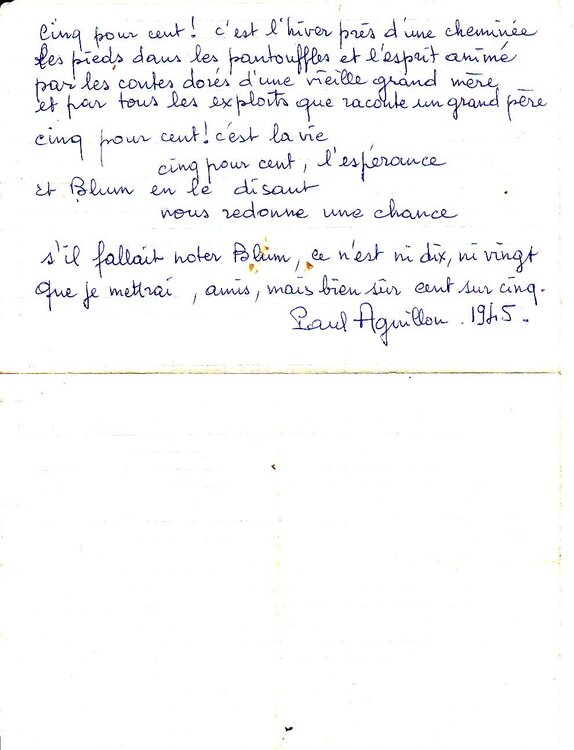 Cinq pour cent! c'est l'hiver près d'une cheminée
Les pieds dans les pantouffles et l'esprit animé
par les contes dorés d'une vieille grand mère,
et par tous les exploits que raconte un grand père
cinq pour cent! c'est la vie
cinq pour cent, l'espérance
Et Blum en le disant
nous redonne une chance
s'il fallait noter Blum, ce n'est ni dix, ni vingt
que je mettrai, amis, mais bien sûr cent sur cinq.
Paul Aguillon. 1945.